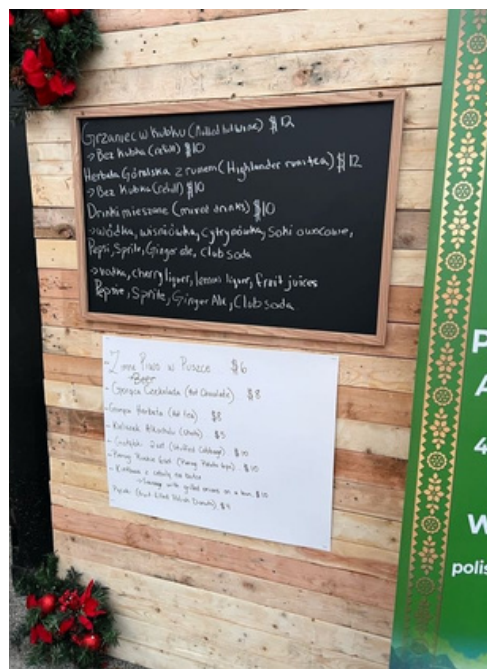 Grzaniec w kubku (Mulled hot wine) $12
→ Bez kubka (refill) $10
Herbata Góralska z rumem (Highlander rum tea) $12
→ Bez Kubka (refill) $10
Drinki mieszane (mixed drinks) $10
→ wódka, wiśniówka, cytrynówka, Soki owocowe,
Pepsi, Sprite, Ginger ale, Club soda
→ vodka, cherry liquer, lemon liquer, fruit juices
Pepsie, Sprite, Ginger Ale, Club soda
- Zimne Piwo w Puszce $6
Beer
- Gorąca Czekolada (Hot Chocolate) $8
- Gorąca Herbata (Hot tea) $8
- Kieliszek Alkoholu (shots) $5
- Gołąbki 2szt (Stuffed Cabbage) $10
- Pierogi Ruskie 6szt $10
- Kiełbasa z cebulą na
→ Sausage with grilled onions on a bun, $10
Pączki Polish Donuts) $4
P
A
4
W
polis